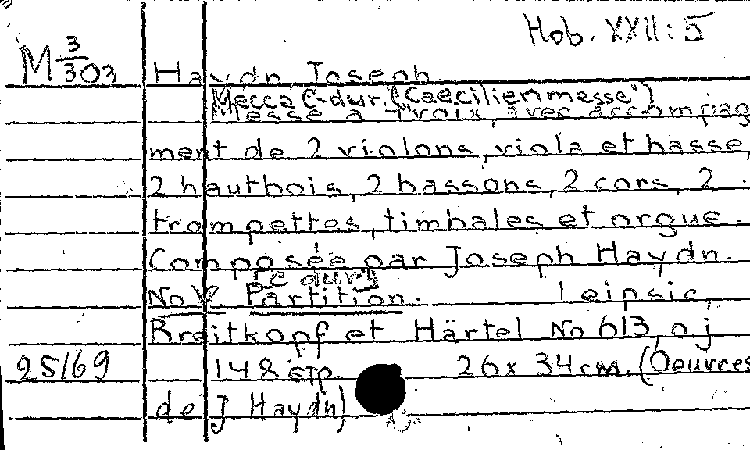 Hob. XXII:5
M 3/303 Haydn Joseph
Messa C-dur. ("Caecilienmesse")
Messe à 4 voix, avec accompag
ment de 2 violons, viola et basse,
2 hautbois, 2 bassons, 2 cors, 2
trompettes, timbales et orgue.
Composée par Joseph Haydn.
[C dur]
No V Partition. Leipsic,
Breitkopf et Härtel No 613, oj
25169 148 stp. 26 x 34 cm. (Oeuvres
de J Haydn)